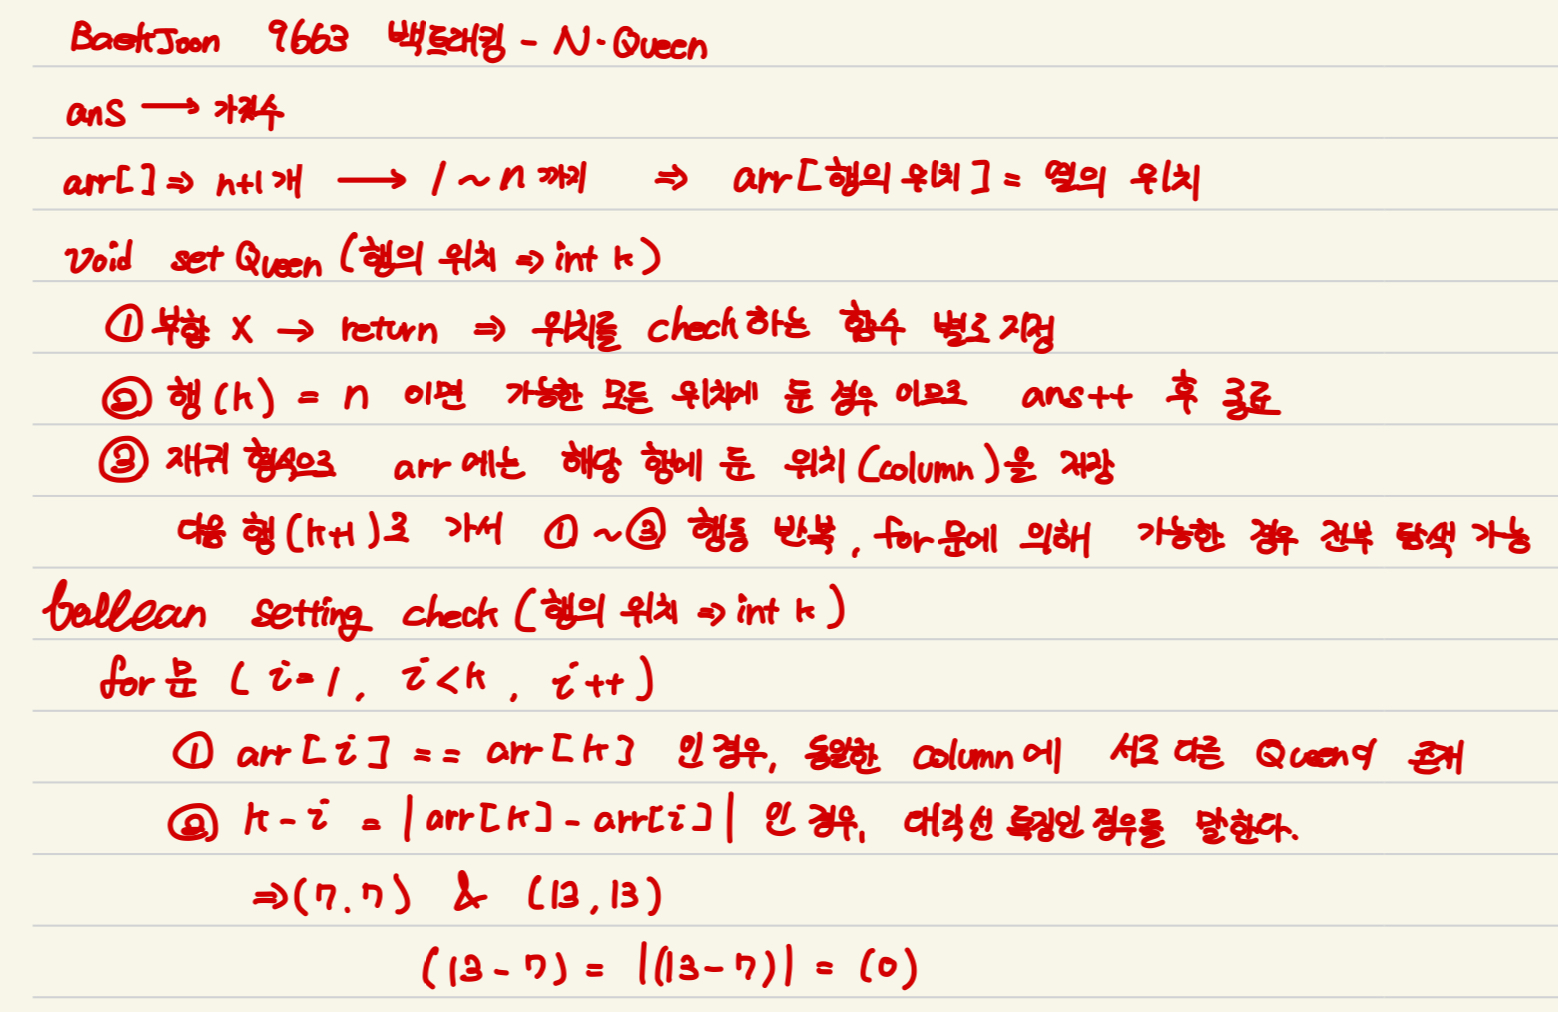 BaekJoon 9663 백트래킹 - N·Queen
ans → 가짓수
arr[] ⇒ n+1개 → 1 ~ n 까지 ⇒ arr[행의 위치] = 열의 위치
void set Queen (행의 위치 ⇒ int k)
① 부합 X → return ⇒ 위치를 check 하는 함수 별로 지정
② 행(k) = n 이면 가능한 모든 위치에 둔 경우 이므로 ans++ 후 종료
③ 재귀 형식으로 arr 에는 해당 행에 둔 위치(column)을 저장
다음 행(k+1)로 가서 ①~③ 행동 반복, for문에 의해 가능한 경우 전부 탐색 가능
bollean setting check (행의 위치 ⇒ int k)
for문 (i=1, i<k, i++)
① arr[i] == arr[k] 인 경우, 동일한 column에 서로 다른 Queen이 존재
② k-i = |arr[k]-arr[i]| 인 경우, 대각선 특징인 경우를 말한다.
⇒(7.7) & (13,13)
(13-7) = |(13-7)| = (0)